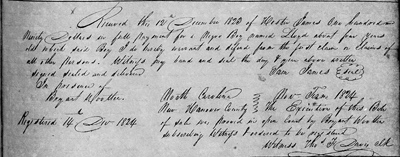 Received the 12th December 1823 of Hester James One hundred &
Ninety Dollars in full payment for a Negro Boy named Lloyd about four years
old which said Boy I do hereby warrant and defend from the just claim or claims of
all other Persons. Witness my hand and seal the day & year above written
signed sealed and delivered Sam James (seal)
In presence of
Bryant Wootten.
North Carolina
New Hanover County
Nov Term 1824
The Execution of this Bill
of sale was proved in open Court by Bryant Wootten
subscribing Witness & ordered to be registered
Witness Thos. F. Davis Clk
Registered 14 Decr 1824